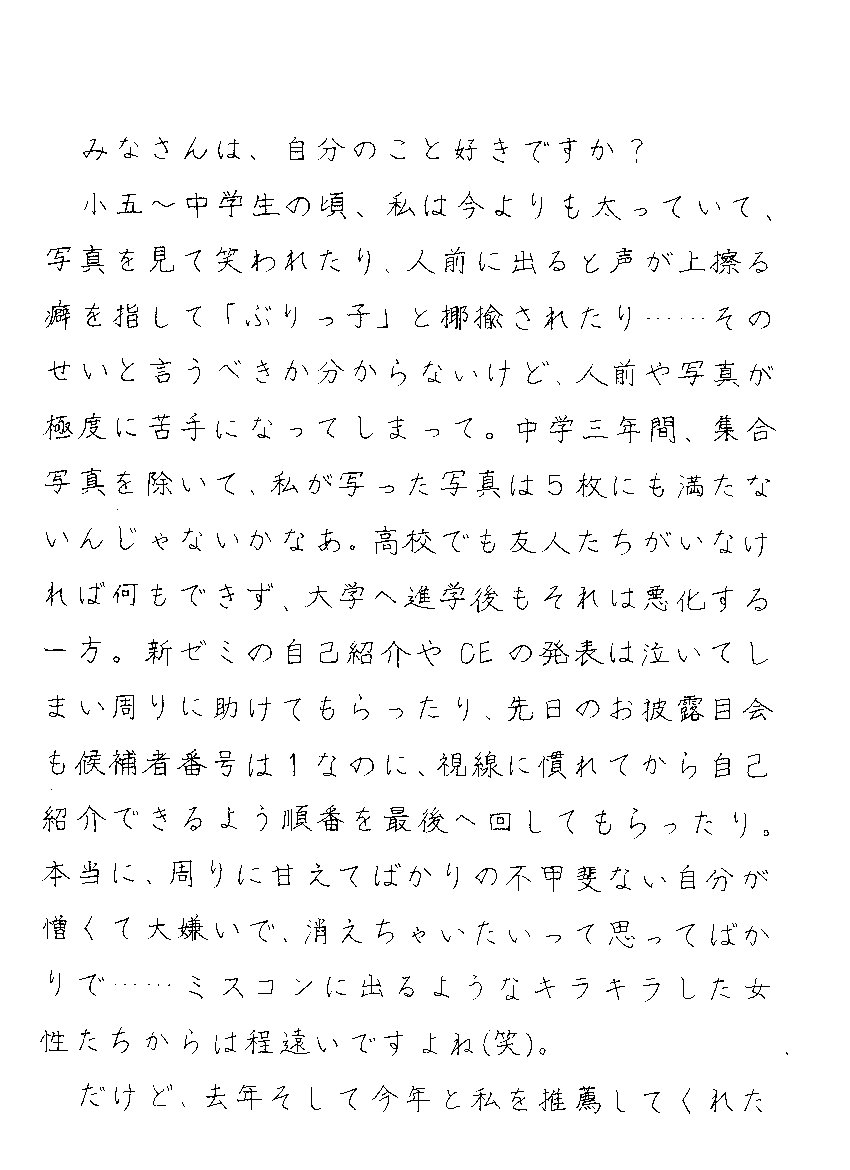 みなさんは、自分のこと好きですか？
小五〜中学生の頃、私は今よりも太っていて、
写真を見て笑われたり、人前に出ると声が上擦る
癖を指して「ぶりっ子」と揶揄されたり……その
せいと言うべきか分からないけど、人前や写真が
極度に苦手になってしまって。中学三年間、集合
写真を除いて、私が写った写真は5枚にも満たな
いんじゃないかなあ。高校でも友人たちがいなけ
れば何もできず、大学へ進学後もそれは悪化する
一方。新ゼミの自己紹介やCEの発表は泣いてし
まい周りに助けてもらったり、先日のお披露目会
も候補者番号は1なのに、視線に慣れてから自己
紹介できるよう順番を最後へ回してもらったり。
本当に、周りに甘えてばかりの不甲斐ない自分が
憎くて大嫌いで、消えちゃいたいって思ってばか
りで……ミスコンに出るようなキラキラした女
性たちからは程遠いですよね(笑)。
だけど、去年そして今年と私を推薦してくれた